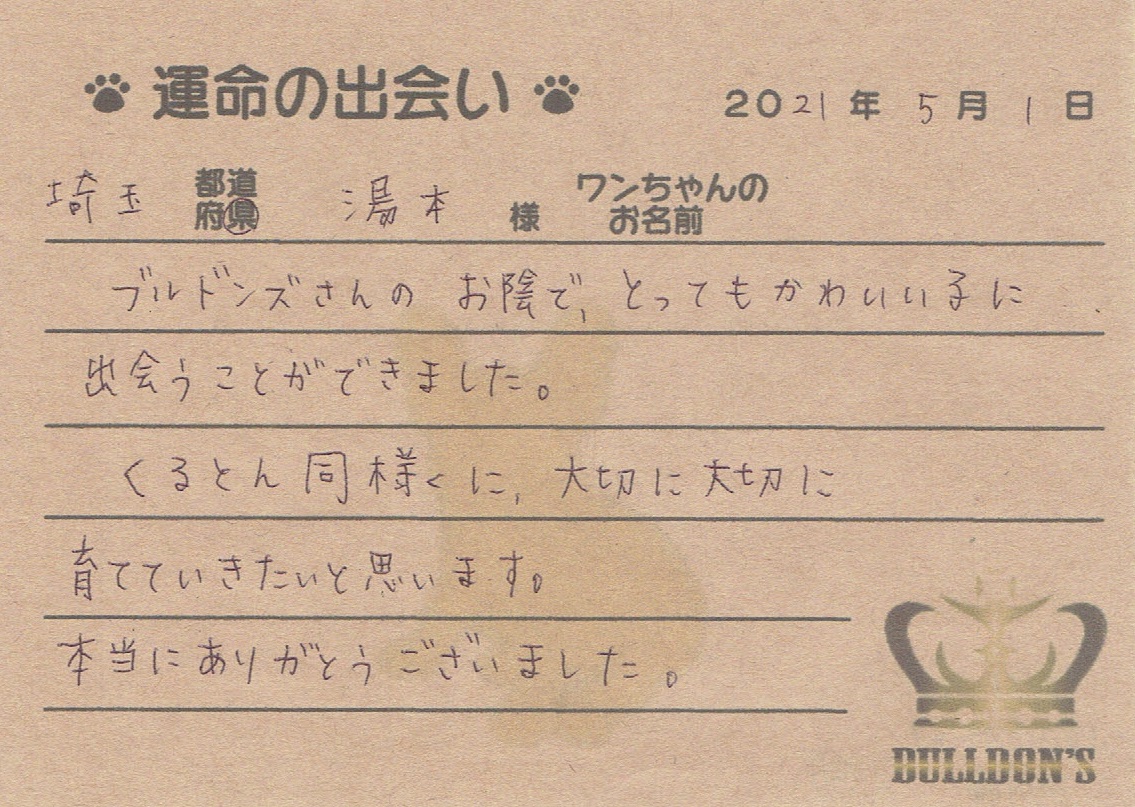 運命の出会い 2021年 5月 1日
埼玉 都道府県 湯本 様 ワンちゃんのお名前
ブルドンズさんの お陰で、とってもかわいい子に
出会うことができました。
くるとん同様に、大切に大切に
育てていきたいと思います。
本当にありがとうございました。
BULLDON'S